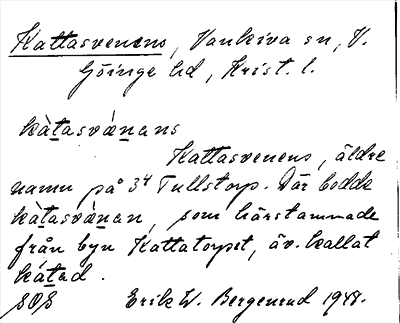 Kattasvenens, Vankiva sn, V.
Göinge hd, Krist. l.
kàtasvänans
Kattasvenens, äldre
namn på 3/4 Tullstorp. Där bodde
kàtasvänan, som härstammade
från byn Kattatorpet, äv. kallat
kátad.
SOS Erik W. Bergenrud 1948.